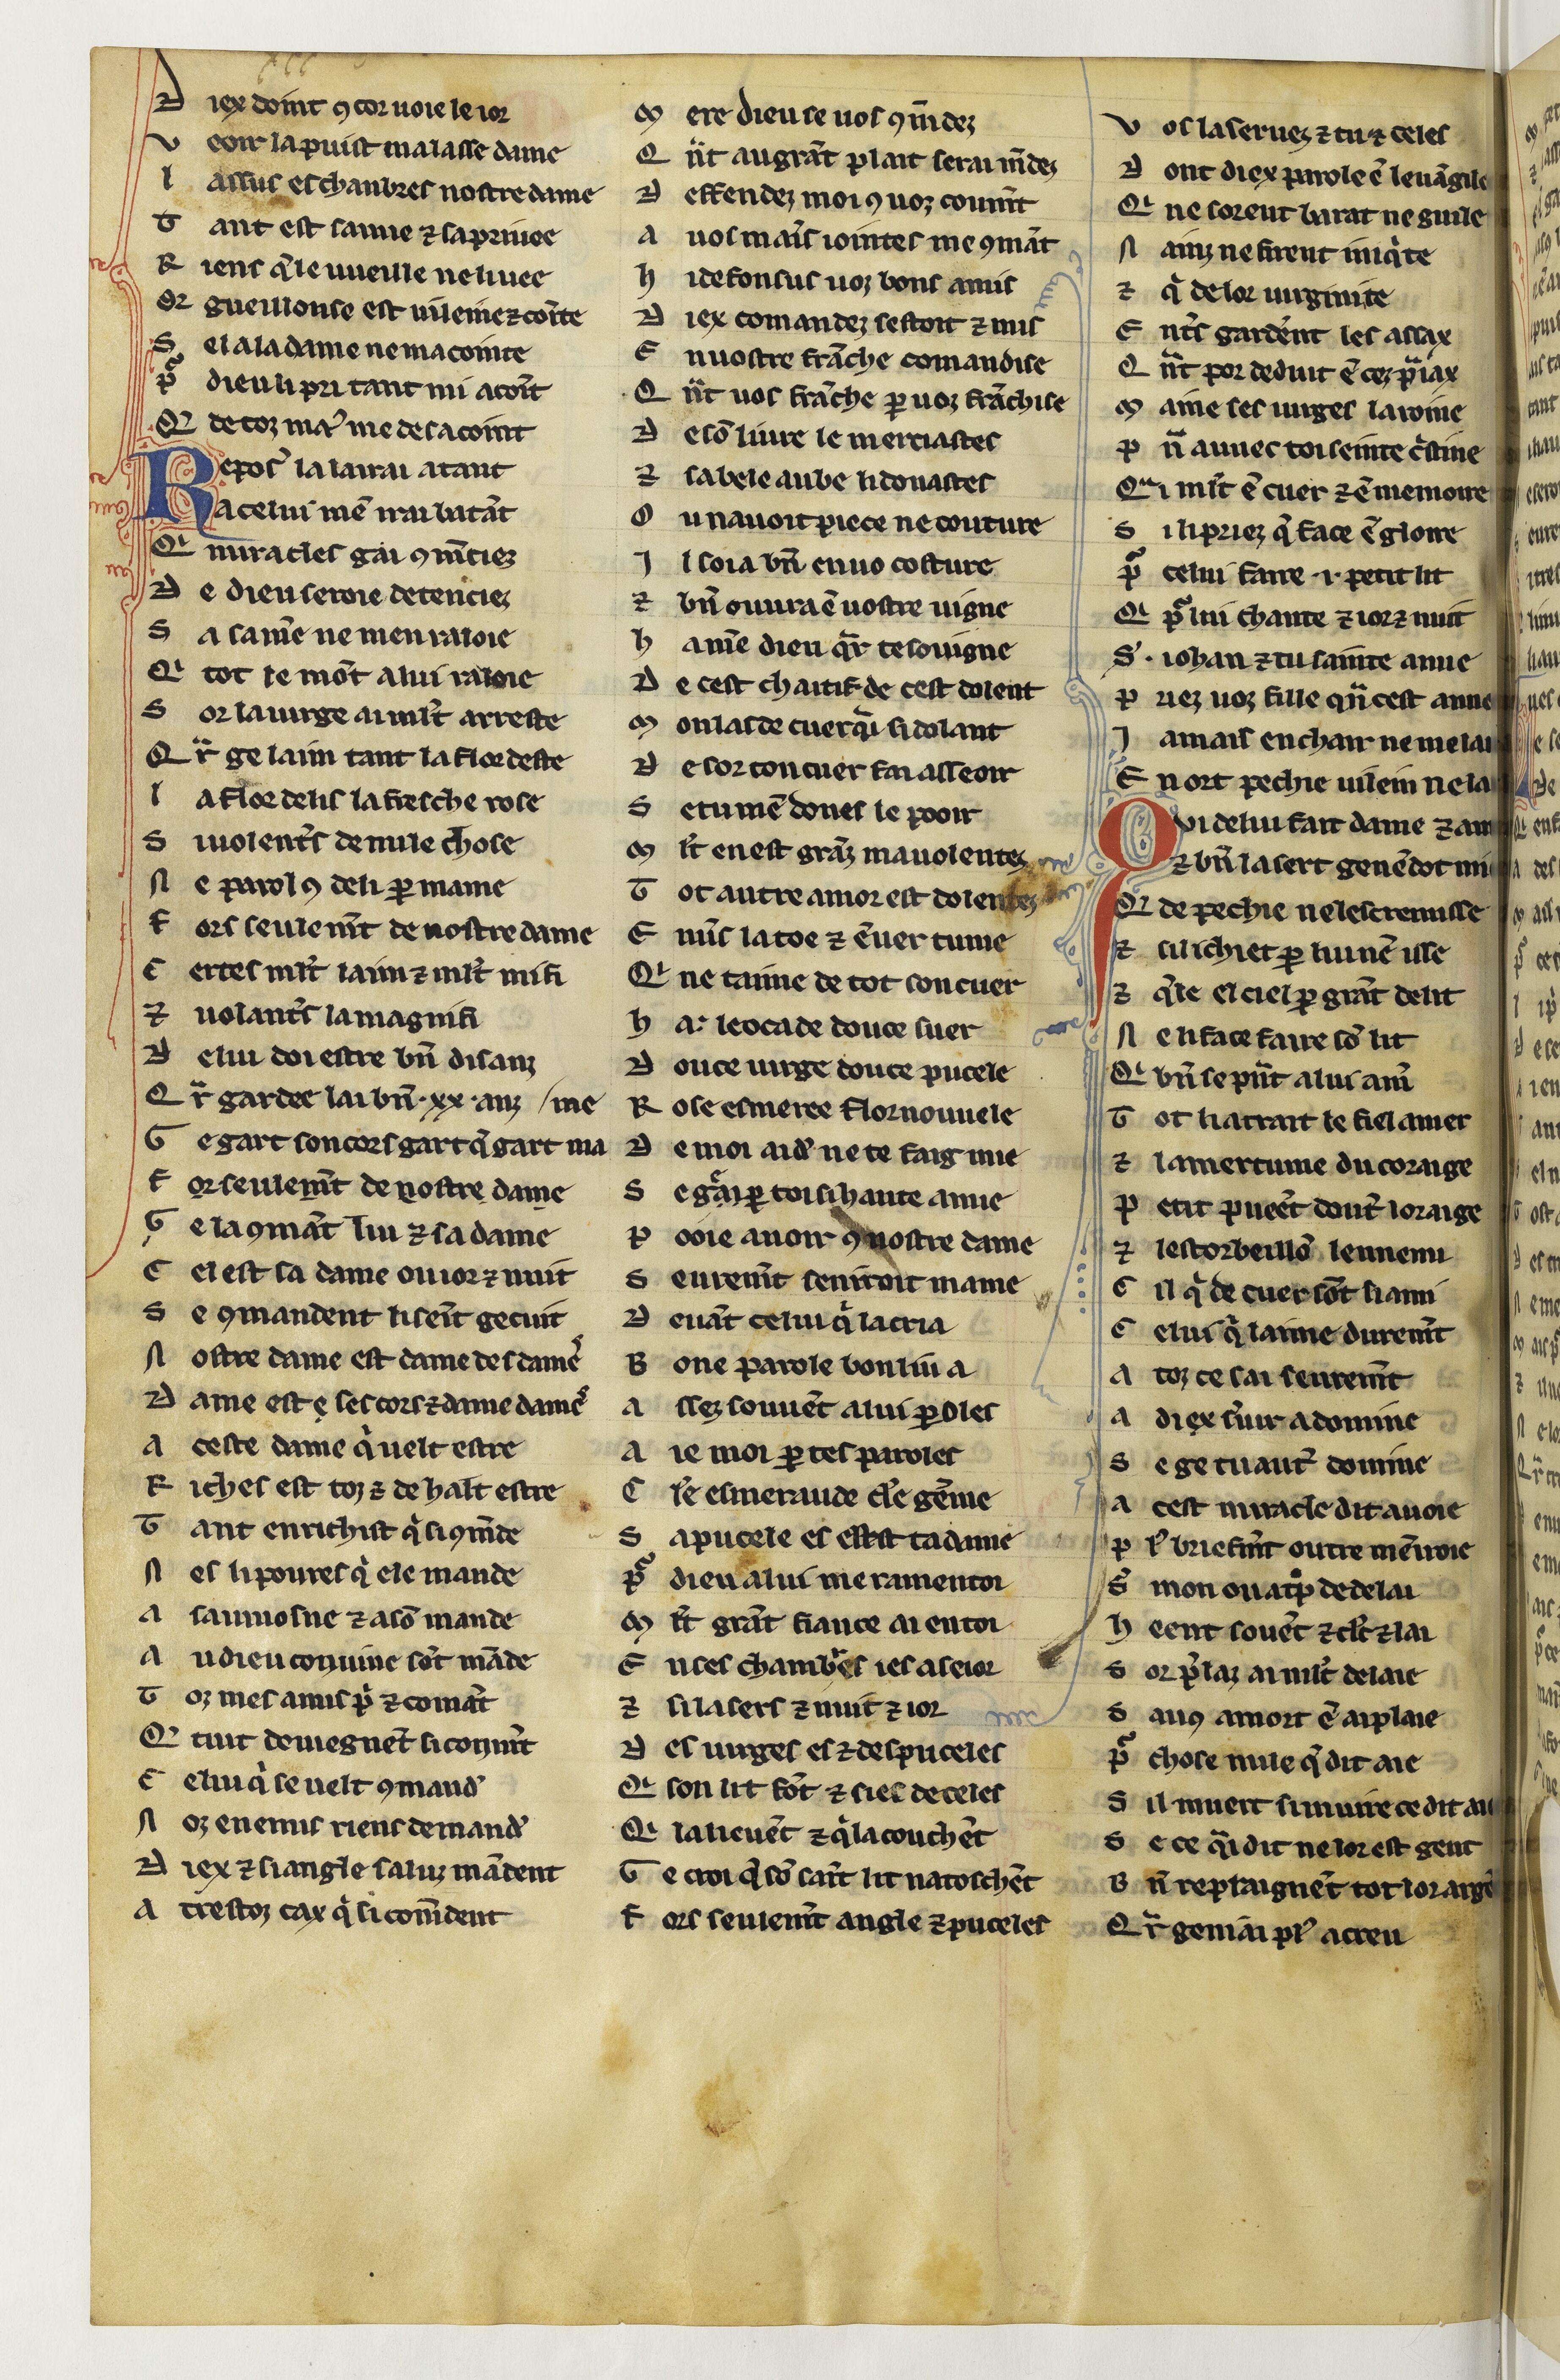 D iex doint ꝯ cor uoie le ior
V eoir la puist ma lasse dame
L assus es chanbres nostre dame
T ant est sainne ⁊ sa priuee
R iens q̃ le uueille ne li uiee
Or gueillouse est uileine ⁊ cointe
S el a la dame ne macointe
P̾ dieu li pri tant mi acoĩt
Q͛ de toz maꝰ me desacoint
Repos la lairai a tant
R a celui mẽ irai batãt
Qi miracles gai ꝯm̃ciez
D e dieu seroie detenciez
S a sam̃e ne men raloie
Qi tot le mõt a lui raloie
S or la uirge ai ml̃t arreste
Q r̃ ge laim tant la flor deste
L a flor de lis la fresche rose
S iuolent̃s de nule chose
N e parol ꝯ de li ꝑ mame
F ors seulem̃t de nostre dame
C ertes ml̃t laim ⁊ ml̃t mi fi
⁊ uolant̃s la magnifi
D e lui doi estre bñ disanz
Q r̃ gardee lai bñ .xx. anz / me
G e gart son cors gart q̃l gart ma
F or seulem̃t de nostre dame
G e la ꝯmãt lui ⁊ sa dame
C el est sa dame ou ior ⁊ nuit
S e ꝯmandent li sẽit ge cuit
N ostre dame est dame des damẽs
D ame est ẹ ses cors ⁊ dame damẽs
A ceste dame q̃ uelt estre
R iches est toz ⁊ de halt estre
T ant enrichist q̃ si ꝯm̃de
N es li poures q̃ ele mande
A saumosne ⁊ a sõ mande
A u dieu conuine sõt mãde
T oz mes amis pͥ ⁊ comãt
Q͛ tuit deuiegnẽt si conm̃t
C elui q̃ se uelt ꝯmand̃
N oz enemis riens demand̃
D iex ⁊ si angle saluz mãdent
A trestoz cax q̃ si com̃dent
M ere dieu se uos ꝯm̃dez
Q ñt au grãt plait serai m̃dez
D effendez moi ꝯ uoz coum̃t
A uos mains iointes me ꝯmãt
H idefonsus uoz bons amis
D iex comandez sestoit ⁊ mis
E n uostre frãche comandise
Q ñt uos frãche ꝑ uoz frãchise
D e sõ liure le merciastes
⁊ sa bele aube li donastes
O u nauoit piece ne couture
I l soia bñ en uo costure
⁊ bñ ouura ẽ uostre uigne
H a m̃e dieu q̃r te souigne
D e cest chaitif de cest dolent
M on las de cuer q̃i si dolant
D e sor ton cuer fai asseoir
S e tu mẽ dones le pooir
M l̃t en est grãz ma uolentez
T ot autre amor est dolentez
E nũs la toe ⁊ ẽuertume
Qi ne taime de tot son cuer
H a leocade douce suer
D ouce uirge douce pucele
R ose esmeree flor nouuele
D e moi aid̃ ne te faig mie
S e gãi ꝑ toi si haute amie
P ooie auoir ꝯ nostre dame
S eurem̃t senitroit mame
D euãt celui q̃ la cria
B one parole bon lui a
A ssez souuẽt a lui ꝑoles
A ie moi ꝑ tes paroles
C l̃e esmeraude cl̃e gẽme
S a pucele es ta dame
P̾ dieu a lui me ramentoi
M l̃t grãt fiance ai en toi
E n ses chambr̃es ies a seior
⁊ si la sers ⁊ nuit ⁊ ior
D es uirges es ⁊ des puceles
Qi son lit fõt ⁊ siel de celes
Qi la lieuẽt ⁊ q̃ la couchẽt
G e croi q̃ sõ saĩt lit natoschẽt
F ors seulem̃t angle ⁊ puceles
V os la seruez ⁊ tu ⁊ celes
D ont diex parole ẽ leuãgile
Qi ne sorent barat ne guile
N ainz ne firent iniq̃te
⁊ q̃ de lor uirginite
E nt̃s gardẽrent les assax
Q ñt por deduit ẽ cez p̃iax
M aine ses uirges la roine
P ñ auuec toi seinte c̾stine
Qui ml̃t ẽ cuer ⁊ ẽ memoire
S i li priez q̃ face ẽ gloire
P̾ celui faire .i. petit lit
Qi p̾ lui chante ⁊ ior ⁊ nuit
S̾. iohan ⁊ tu sainte anne
P riez uoz fille qñ cest anne
I amais en charr ne me lai
E n ort pechie uilein ne la
Qvi de lui fait dame ⁊ am
⁊ bñ la sert ge nẽ dot mi
Q͛ de pechie nel escremisse
⁊ sil ichiet ꝑ lui nẽ isse
⁊ q̃le el ciel ꝑ grãt delit
N en face faire sõ lit
Qi bñ se pñt a lui am̃
T ot li atrait le fiel amer
⁊ lamertume du coraige
P etit pueẽt dout̃ loraige
⁊ lestorbeillõ lennemi
C il q̃ de cuer sõt si ami
C elui q̃ laime durem̃t
A toz ce sai seurem̃t
A diex s̃uir a domine
S e ge tuaut̃ domine
A cest miracle dit auoie
P l̾ briefm̃t outre mẽ iroie
S̾ mon ouatp̾ de delai
H eent souẽt ⁊ cl̃c ⁊ lai
S or p̾laz ai ml̃t delaie
S auꝯ amort ẽ ai plaie
P̾ chose nule q̃ dit aie
S il muert si muire ce dit
S e ce q̃i dit ne lor est gent
B ñ replaignẽt tot lor argẽ
Q r̃ gen iai pl̾ acreu